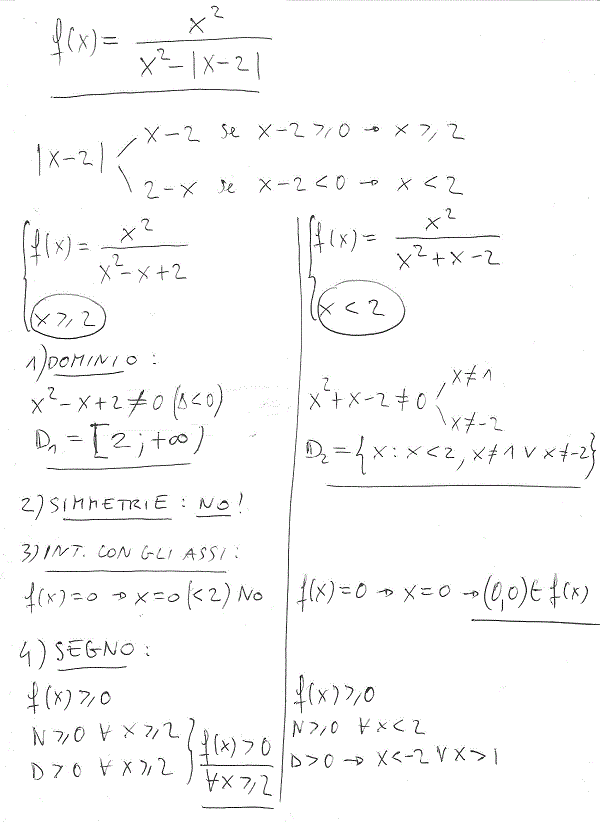 f(x) = x² / (x² - |x-2|)
|x-2| x-2 se x-2 ⩾ 0 → x ⩾ 2
2-x se x-2 < 0 → x < 2
{ f(x) = x² / (x² - x + 2)
x ⩾ 2
{ f(x) = x² / (x² + x - 2)
x < 2
1) DOMINIO :
x² - x + 2 ≠ 0 (Δ<0)
D₁ = [2 ; +∞)
x² + x - 2 ≠ 0 x ≠ 1
x ≠ -2
D₂ = { x : x < 2, x ≠ 1 ∨ x ≠ -2 }
2) SIMMETRIE : NO!
3) INT. CON GLI ASSI :
f(x) = 0 → x = 0 (<2) NO
f(x) = 0 → x = 0 → (0,0) ∈ f(x)
4) SEGNO :
f(x) ⩾ 0
N ⩾ 0 ∀ x ⩾ 2
D > 0 ∀ x ⩾ 2
} f(x) > 0
∀ x ⩾ 2
f(x) ⩾ 0
N ⩾ 0 ∀ x < 2
D > 0 → x < -2 ∨ x > 1